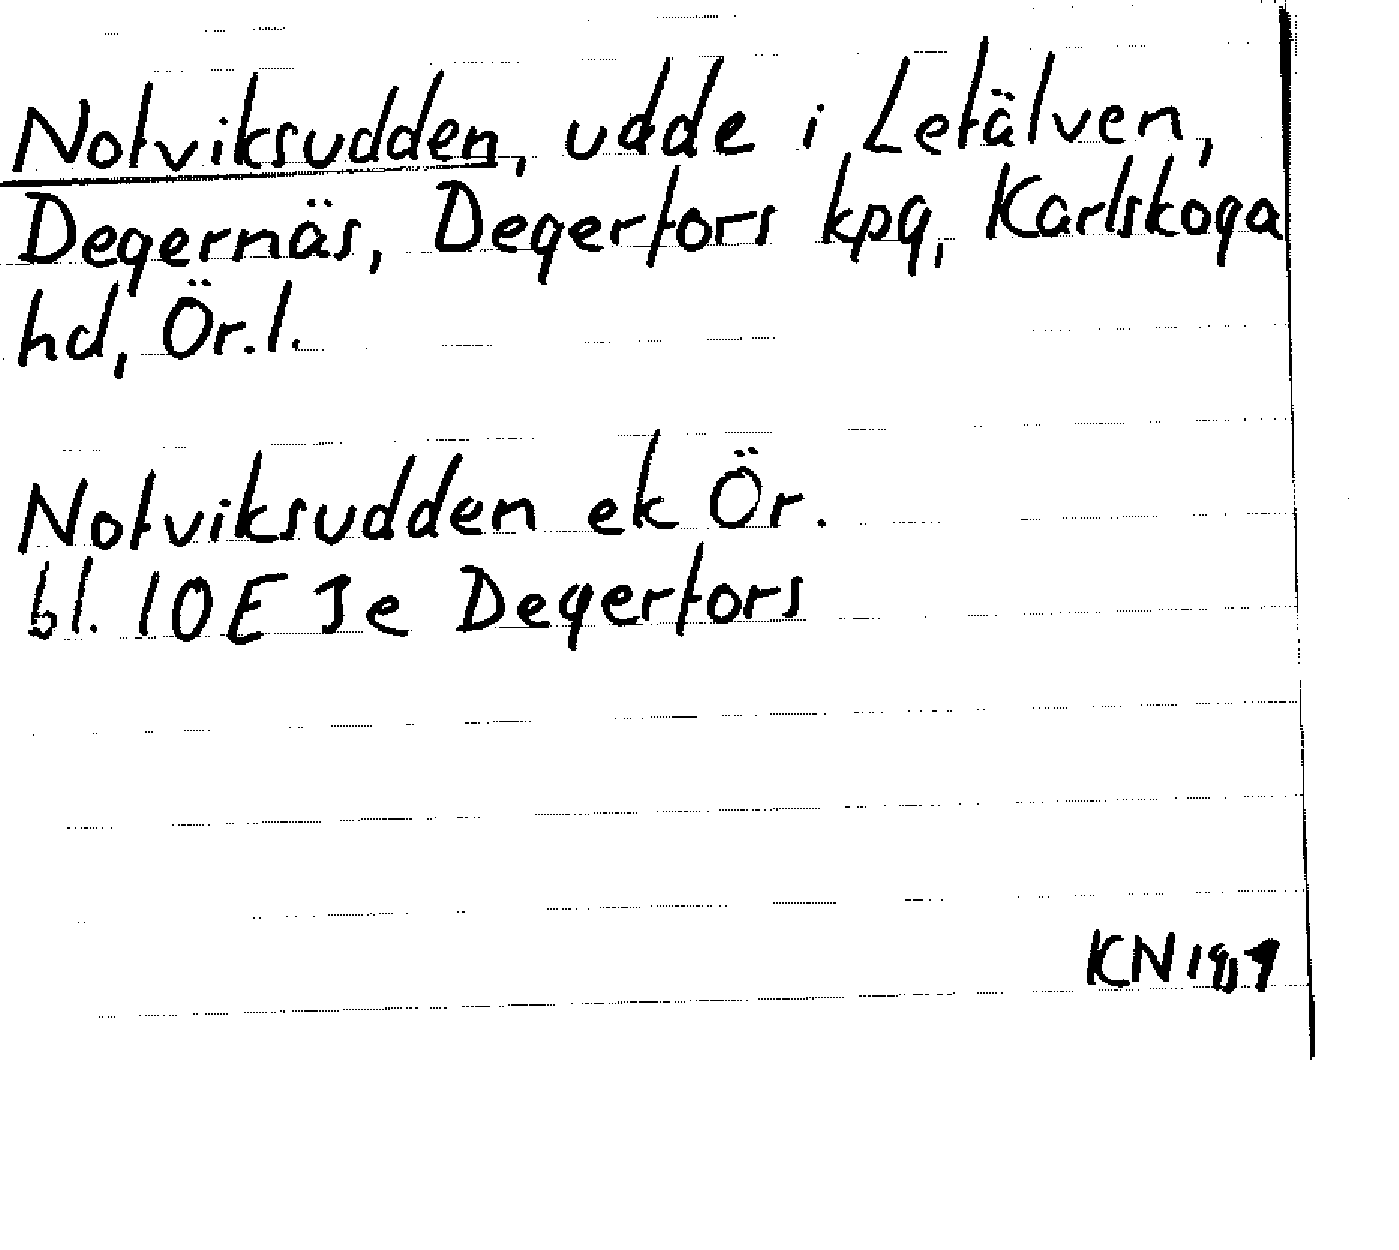 Notviksudden, udde i Letälven,
Degernäs, Degerfors kpg, Karlskoga
hd, Ör.l.
Notviksudden ek Ör.
bl. 10E Je Degerfors
KN